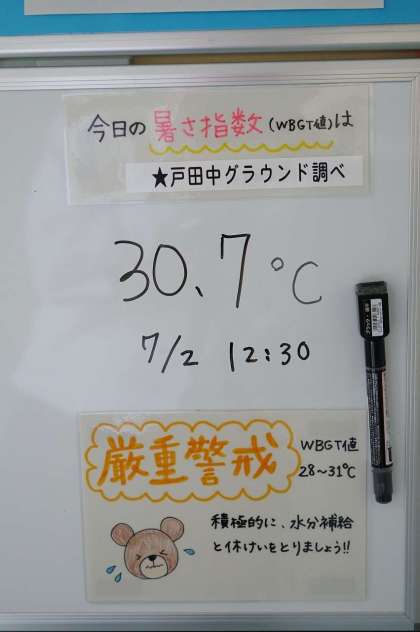 今日の暑さ指数(WBGT値)は
★戸田中グラウンド調べ
30、7℃
7/2 12:30
厳重警戒
WBGT値
28~31℃
積極的に、水分補給
と休けいをとりましょう!!